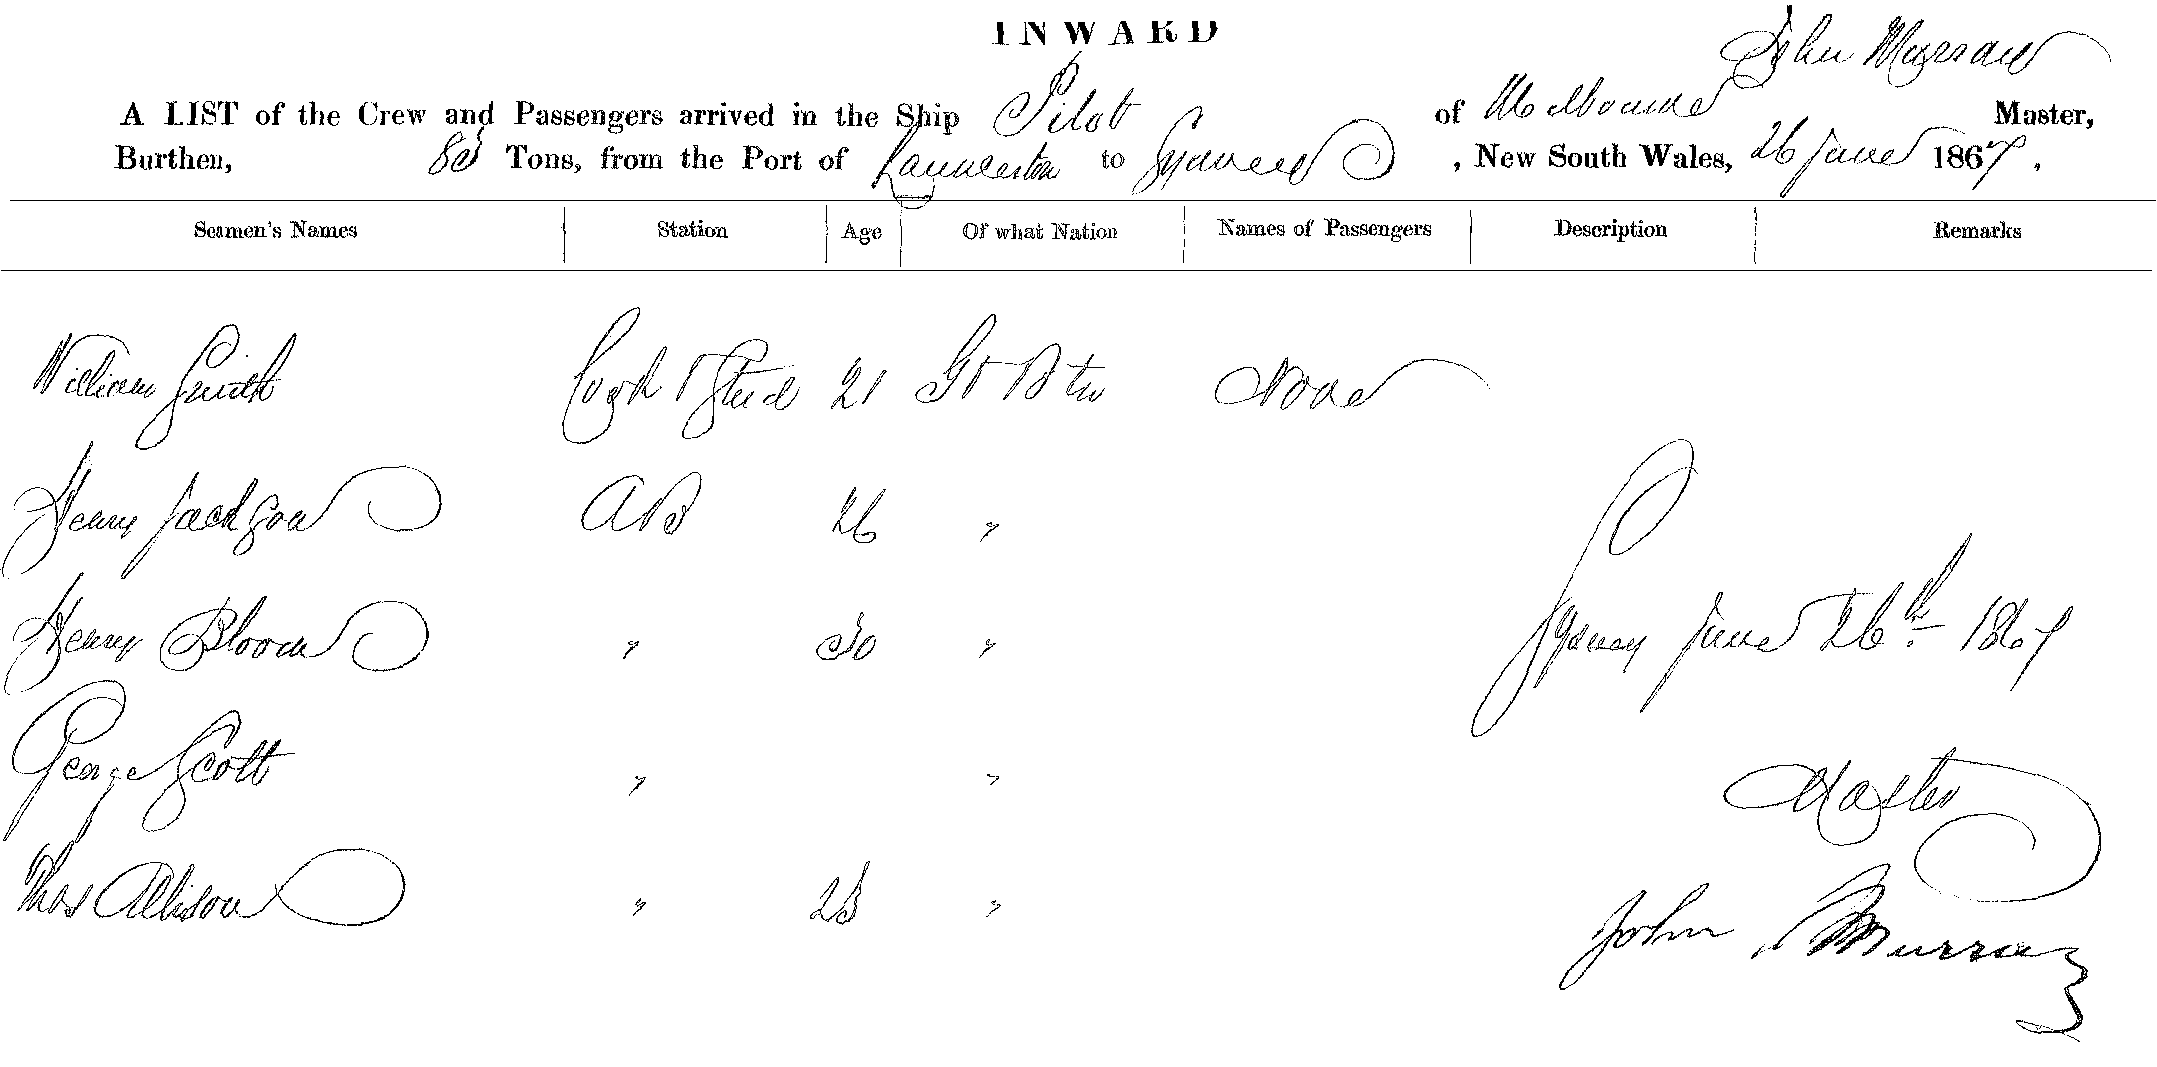 INWARD
John Murray
A LIST of the Crew and Passengers arrived in the Ship Pilot of Melbourne Master,
Burthen, Tons, from the Port of Launceston to Sydney, New South Wales, 26 June 1867.
Seamen's Names Station Age Of what Nation Names of Passengers Description Remarks
William Smith Cook & Stud 21 Gt Btn None
Henry Jackson AB 26 "
Henry Bloom " 30 "
George Scott " "
Thos Allison " 23 "
Sydney June 26th. 1867
Master
John Murray